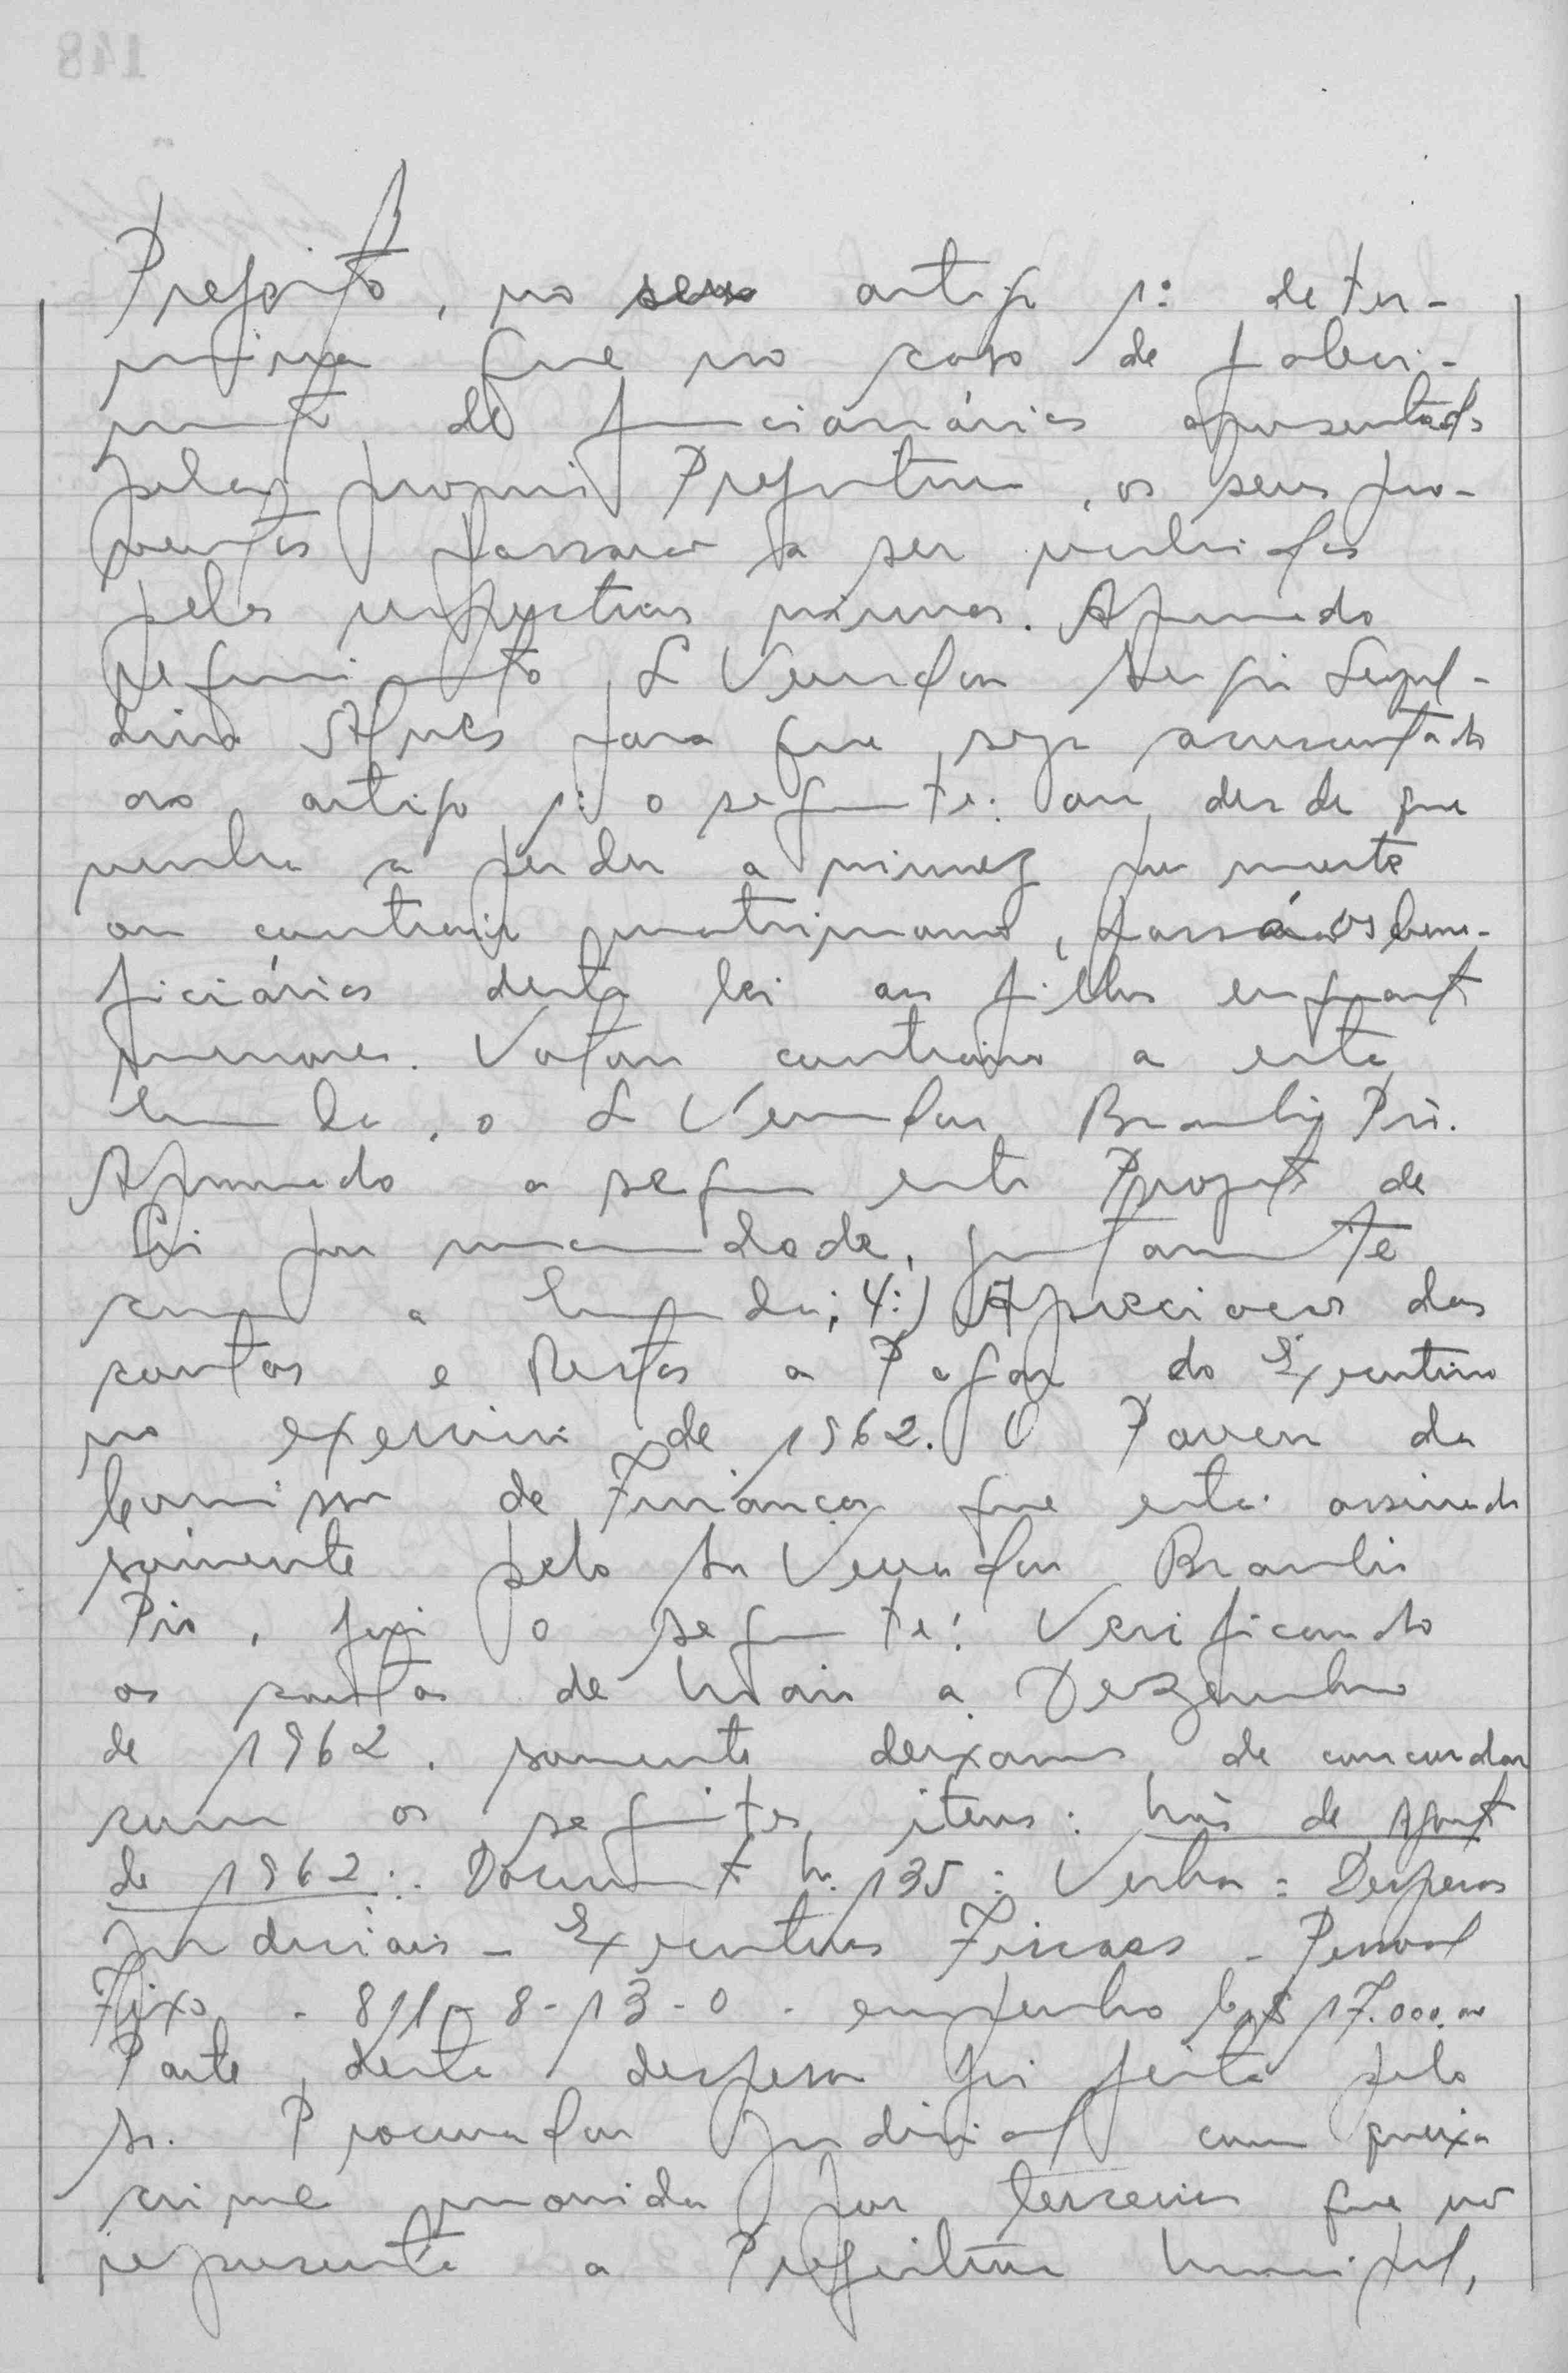 Prefeito, no seu artigo 1º deter-
mina que no caso de faleci-
mento de funcionários aposentados
pela propria Prefeitura, os seus pro-
ventos passarão a ser recebidos
pelas respectivas viuvas. Aprovado
requerimento Vereador Sergio
Alves para que seja acrescentado
ao artigo 1º o seguinte: ou desde que
venha a perder a viuvez por morte
ou contrair matrimonio, passará os bene-
ficiários desta lei aos filhos enquanto
menores. Votou contrario a esta
Emenda, o Sr Vereador Braulio Pio.
Aprovado a seguir este Projeto de
Lei por unanimidade, juntamente
com a Emenda; 4º) Apreciação das
contas e Restos a Pagar do Executivo
no exercicio de 1962. O Parecer da
Comissão de Finanças que está assinado
sómente pelo Sr Vereador Braulio
Pio, foi o seguinte: Verificando
as contas de Maio a Dezembro
de 1962, somente deixamos de concordar
com os seguintes itens: Mês de Agosto
de 1962: Documento N. 135: Verba: Despesas
Judiciais - Executivos Fiscaes - Pessoal
Fixo - 811 - 8-13-0 - empenho Cr$ 17.000,00
Parte desta despesa foi feita pelo
Sr. Procurador Judicial com queixa
crime movida por terceiros que não
representa a Prefeitura Municipal,
148